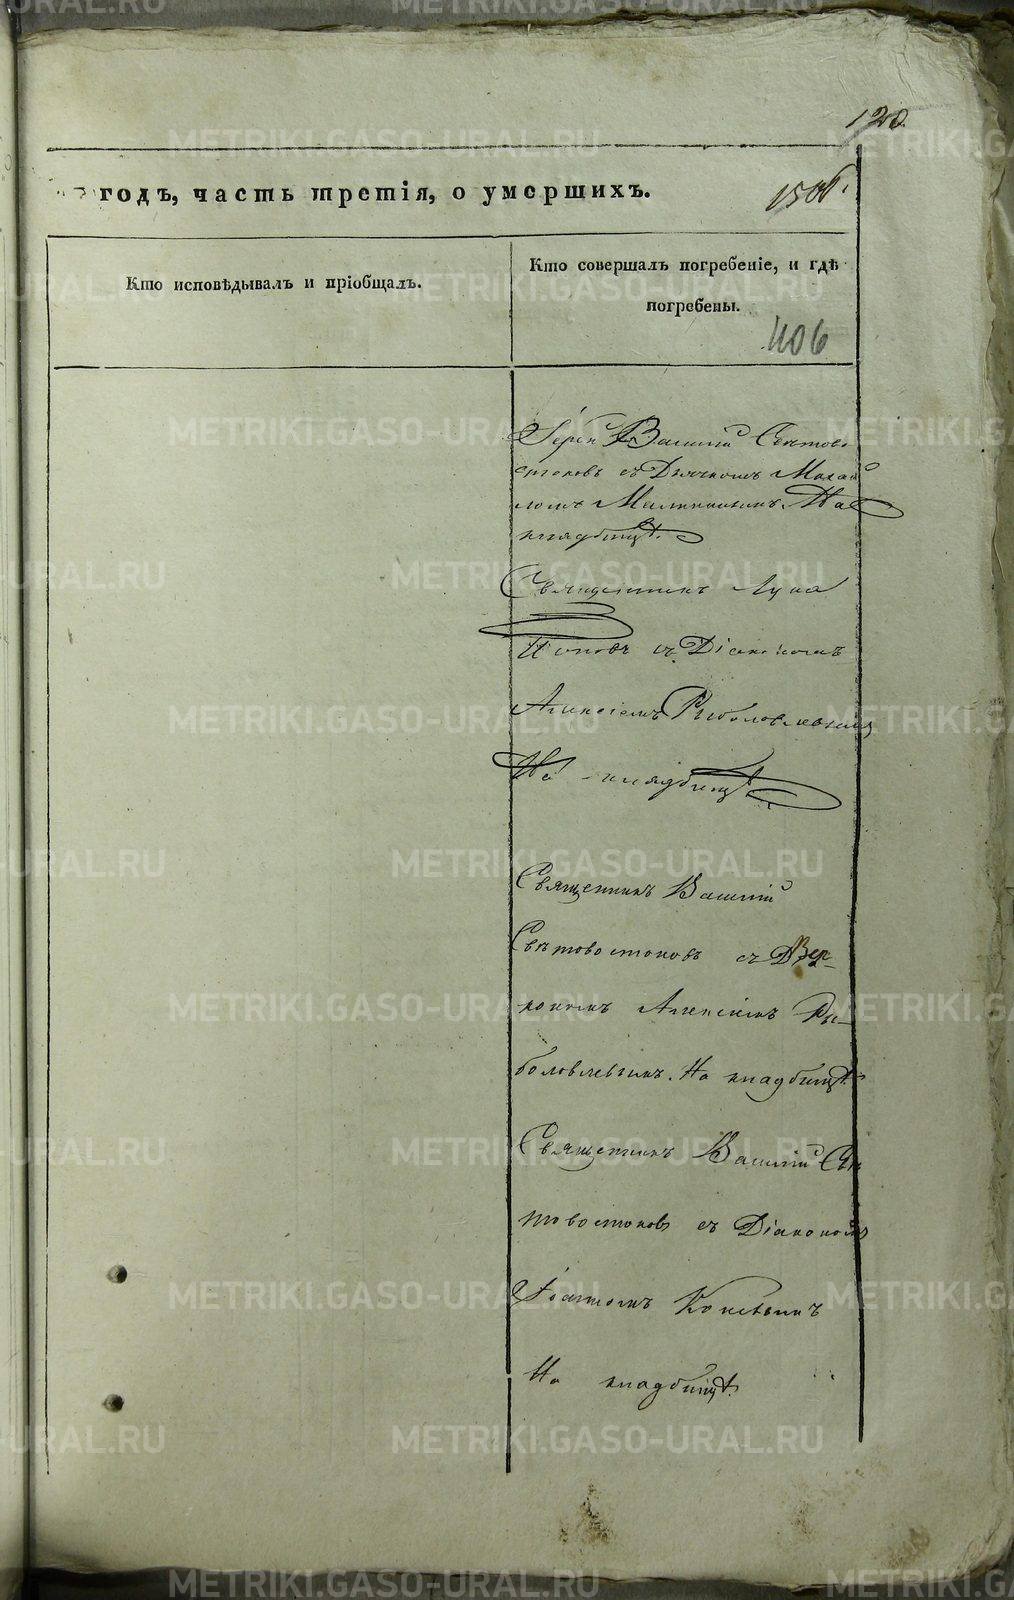 120.
годъ, часть третія, о умершихъ.
Кто исповѣдывалъ и пріобщалъ.
Кто совершалъ погребеніе, и гдѣ
погребены.
406
Іерей Василій Свѣтово-
стоковъ съ Дьячкомъ Михаи
ломъ На
кладбищѣ.
Священникъ Лука
Поповъ съ Діакономъ
Алексіемъ Рыболовлевымъ
На кладбищѣ
Священникъ Василій
Свѣтовостоковъ съ
кономъ Алексіемъ Ры-
боловлевымъ. На кладбищѣ.
Священникъ Василій Свѣ
товостоковъ съ Діакономъ
Іоанномъ
На кладбищѣ.
METRIKI.GASO-URAL.RU